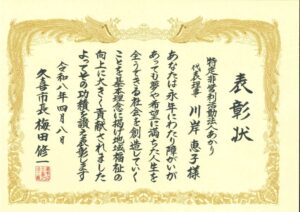 表彰状
特定非営利活動法人あかり
代表理事 川岸恵子様
あなたは永年にわたり障がいが
あっても夢や希望に満ちた人生を
全うできる社会を創造していく
ことを基本理念に掲げ地域福祉の
向上に大きく貢献されました
よってその功績を讃え表彰します
令和八年四月八日
久喜市長 梅田修一